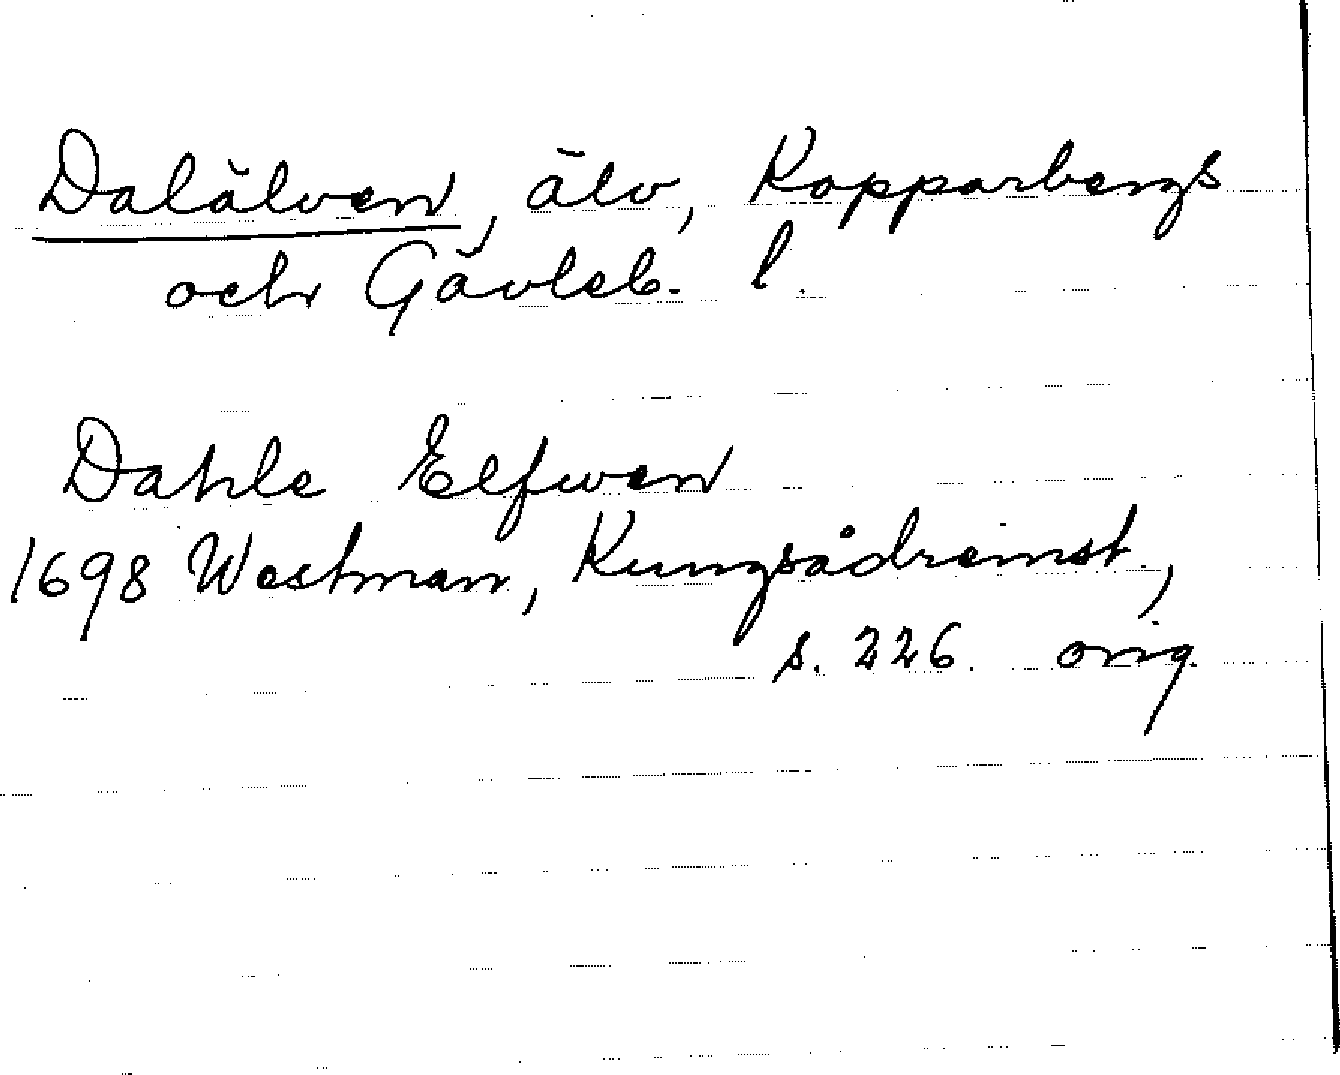 Dalälven, älv, Kopparbergs
och Gävleb. l.
Dahle Elfwen
1698 Westman, Kungsådreinst.,
s. 226. orig.